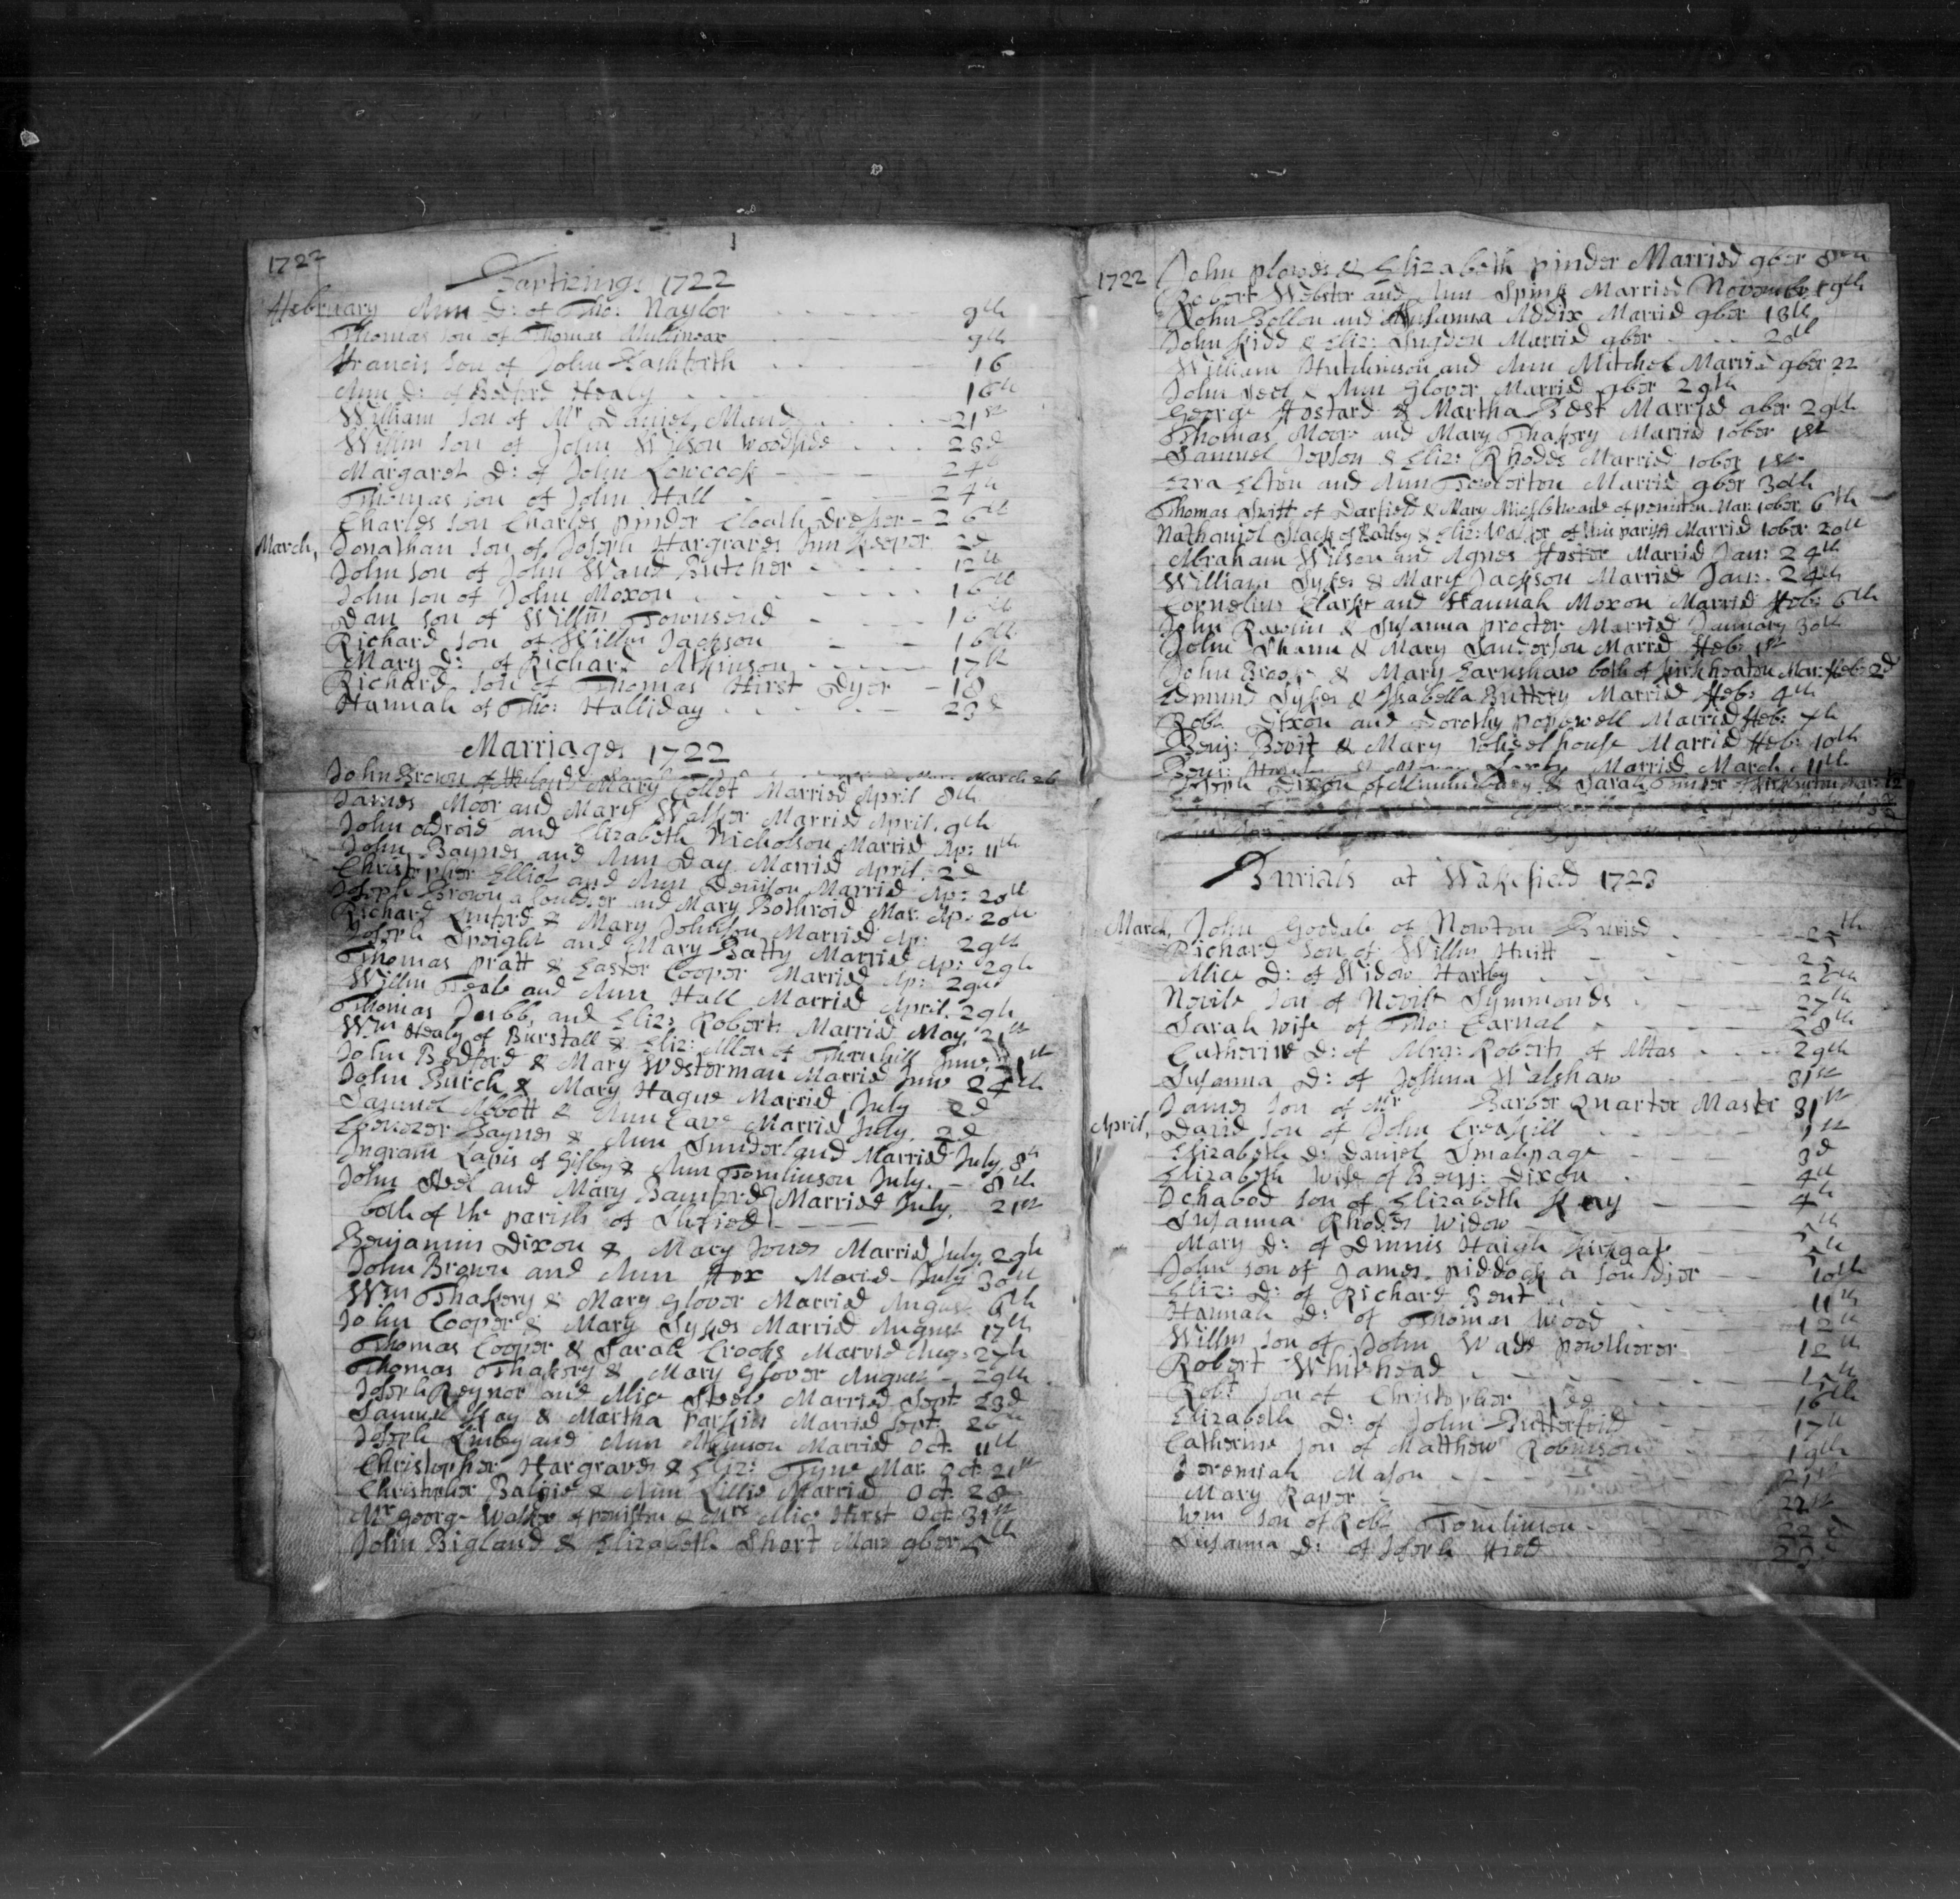 1722
Baptizings 1722
February Ann D: of Tho: Naylor 9th
Thomas son of Thomas Mullineax 9th
Francis son of John 16
Ann D: of Bedford Healy 16th
William son of Mr Daniel Maud 21st
Willm son of John Wilson Woodside 23d
Margaret D: of John Lowcock 24th
Thomas son of John Hall 24th
Charles son Charles pinder Cloath Dresser - 26th
March, Jonathan son of Joseph Hargraves Inn Keeper 2d
John son of John Wand Butcher 12th
John son of John Moxon 16th
Dan son of Willm Townsend
Richard son of Willm Jackson 16th
Mary D: of Richard Atkinson 17th
Richard son of Thomas Hirst Dyer - 18
Hannah of Tho: Halliday 23d
Marriages 1722
John Brown of & Mary Collet March 26
James Moor and Mary Walker Married April 8th
John oldroid and Elizabeth Nicholson Married April. 9th
John Baynes and Ann Day Married Ap: 11th
Christopher Elliot and Ann Denison Married April. 2d
Joseph Brown a Souldier and Mary Bothroid Mar: Ap: 20th
Richard Linford & Mary Johnson Married Ap: 20th
Joseph Speight and Mary Batty Married Ap: 29th
Thomas pratt & Easter Cooper Married Ap: 29th
Willm Teale and Ann Hall Married April. 29th
Thomas Jubb and Eliz: Roberts Married May. 21st
Wm Healy of Burstall & Eliz: Allen of Thornhill June.
John Bedford & Mary Westerman Married June 24th
John Burch & Mary Hague Married July 2d
Samuel Abbott & Ann Cave Married July. 2d
Ebenezer Baynes & Ann Sunderland Married July. 8th
Ingram Lapis of & Ann Tomlinson July. - 8th
John Steel and Mary Bamford Married July. 21st
both of the parish of
Benjamin Dixon & Mary Jones Married July. 29th
John Brown and Ann Fox Maried July 30th
Wm Thakery & Mary Glover Married August 6th
John Cooper & Mary Sykes Married August 17th
Thomas Cooper & Sarah Crooks Married Aug: 27th
Thomas Thakery & Mary Glover August - 29th
Joseph Reyner and Alice Steele Married Sept 23d
Samuel Kay & Martha parkin Married Sept: 26th
Joseph and Ann Atkinson Married Oct: 11th
Christopher Hargraves & Eliz: Tyne Mar: Oct: 21st
Christopher & Ann Lillie Married Oct: 28
Mr George Walker of & Mrs Alice Hirst Oct 31st
John Bigland & Elizabeth Short Mar: 9ber 5th
1722 John plowes & Elizabeth pinder Married 9ber 8th
Robert Webster and Ann Spink Married November 9th
John Bollon and Susanna Addix Married 9ber 18th
John Kidd & Eliz: Sugden Married 9ber 20th
William Hutchinson and Ann Mitchel Married 9ber 22
John Teel & Ann Glover Married 9ber 29th
George Hostard & Martha Best Married 9ber 29th
Thomas Moore and Mary Thakery Married 10ber 1st
Samuel Jepson & Eliz: Rhodes Married 10ber 1st
Ezra Elton and Ann Married 9ber 30th
Thomas Swift of Darfield & Mary Micklethwaite of Mar: 10ber 6th
Nathaniel Slack of Batley & Eliz: Walker of this parish Married 10ber 20th
Abraham Wilson and Agnes Foster Married Jan: 24th
William Sykes & Mary Jackson Married Jan: 24th
Cornelius Clarke and Hannah Moxon Married Feb: 6th
John Rawlin & Susanna procter Married January 30th
John Shann & Mary Sanderson Married Feb: 1st
John Brook & Mary Earnshaw both of kirkheaton Mar: Feb: 2d
Edmund Sykes & Isabella Buttery Married Feb: 4th
Robt Dixon and Dorothy popewell Married Feb: 7th
Benj: Bevit & Mary Wheelhouse Married Feb: 10th
Benj: Married March. 11th
Joseph Dixon of & Sarah Mar: 12
Burials at Wakefield 1723
March, John Goodale of Newton Buried
Richard son of Willm Huitt 25
Alice D: of Widow Hartley 26th
Nevile son of Nevile Symmonds 27th
Sarah wife of Tho: Carnal 28th
Catherine D: of Roberts of 29th
Susanna D: of Joshua Walshaw 31st
James son of Mr Barber Quarter Master 31st
April, David son of John Creaskill 1st
Elizabeth D: Daniel Smalpage 3d
Elizabeth Wife of Benj: Dixon 4th
Ichabod son of Elizabeth Kay 4th
Susanna Rhodes Widow 5th
Mary D: of Dennis Haigh kirkgate 5th
John son of James piddock a Souldier 10th
Eliz: D: of Richard Bent 11th
Hannah D: of Thomas Wood 12th
Willm son of John Wade pewtherer 12th
Robert Whitehead 15th
Robt son of Christopher Lee 16th
Elizabeth D: of John Butterfeild 17th
Catherine son of Matthew Robinson 19th
Jeremiah Mason 21st
Mary Raper 22st
Wm son of Robt Tomlinson 22d
Susanna D: of Joseph 23d